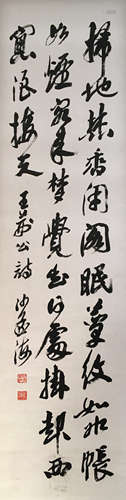 掃地焚香閉閣眠簟紋如水帳
如煙客來夢覺知何處掛起西
窗浪接天
王荊公詩 沙孟海